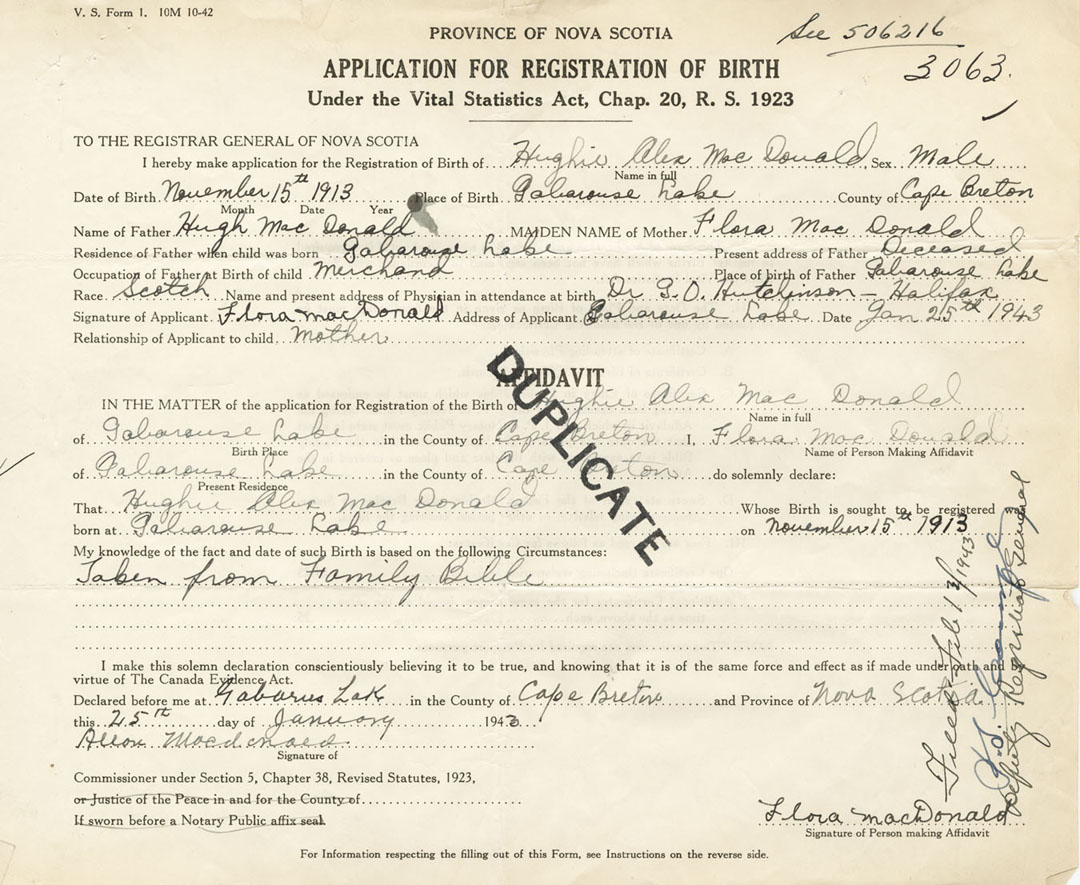 V. S. Form 1. 10M 10-42
See 506216
PROVINCE OF NOVA SCOTIA
3063.
APPLICATION FOR REGISTRATION OF BIRTH
Under the Vital Statistics Act, Chap. 20, R. S. 1923
TO THE REGISTRAR GENERAL OF NOVA SCOTIA
I hereby make application for the Registration of Birth of Hughie Alex Mac Donald Sex Male
Name in full
Date of Birth November 15th 1913 Place of Birth Gabarouse Lake County of Cape Breton
Month Date Year
Name of Father Hugh Mac Donald MAIDEN NAME of Mother Flora Mac Donald
Residence of Father when child was born Gabarouse Lake Present address of Father Deceased
Occupation of Father at Birth of child Merchand Place of birth of Father Gabarouse Lake
Race. Scotch Name and present address of Physician in attendance at birth Dr G. O. Hutchinson - Halifax
Signature of Applicant Flora macDonald Address of Applicant Gabarouse Lake Date Jan 25th 1943
Relationship of Applicant to child Mother
AFFIDAVIT
DUPLICATE
IN THE MATTER of the application for Registration of the Birth of Hughie Alex Mac Donald
Name in full
of Gabarouse Lake in the County of Cape Breton I, Flora Mac Donald
Birth Place Name of Person Making Affidavit
of Gabarouse Lake in the County of Cape Breton do solemnly declare:
Present Residence
That Hughie Alex Mac Donald Whose Birth is sought to be registered was
born at Gabarouse Lake on November 15th 1913
My knowledge of the fact and date of such Birth is based on the following Circumstances:
Taken from Family Bible
I make this solemn declaration conscientiously believing it to be true, and knowing that it is of the same force and effect as if made under oath and by
virtue of The Canada Evidence Act.
Declared before me at Gabarus Lak in the County of Cape Breton and Province of Nova Scotia
this 25th day of January 1943
Macdonald
Signature of
Commissioner under Section 5, Chapter 38, Revised Statutes, 1923,
or Justice of the Peace in and for the County of
If sworn before a Notary Public affix seal.
Flora macDonald
Signature of Person making Affidavit
Feb 12/1943
Deputy Registrar General
For Information respecting the filling out of this Form, see Instructions on the reverse side.